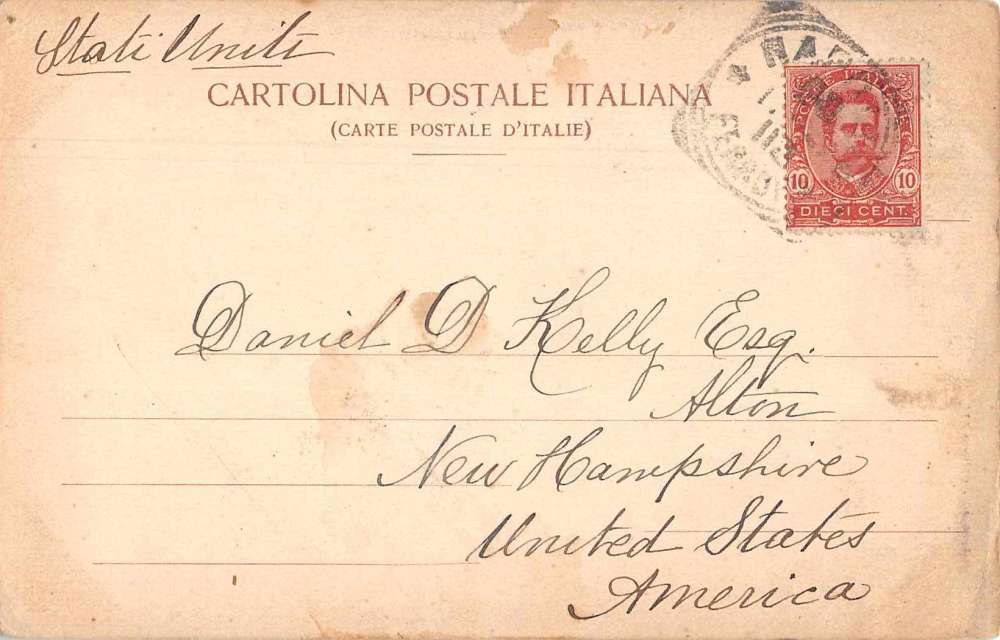 Stati Uniti
CARTOLINA POSTALE ITALIANA
(CARTE POSTALE D'ITALIE)
POSTE ITALIANE
10 10
DIECI CENT.
Daniel D Kelly Esq.
Alton
New Hampshire
United States
America